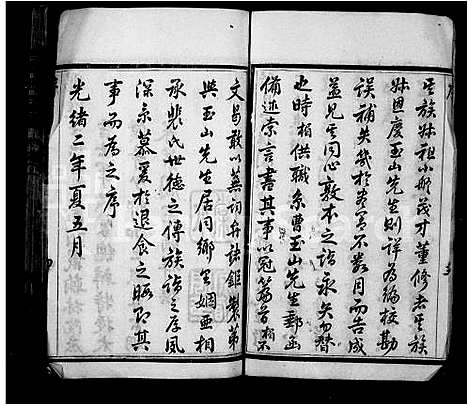 其族叔祖小舫茂才董修者其族
叔思度玉山先生則詳為編校勘
誤補失幾於序而不數月而告成
益見其同心敦本之誼永矢勿替
也時柏供職京曹玉山先生郵函
備述索言書其事以冠篇首柏不
文曷敢以蕪詞弁諸鉅製第
與玉山先生居同鄉里姻亞相
承裴氏世德之傳族誼之厚夙
深景慕爰於退食之暇即其
事而為之序
光緒二年夏五月